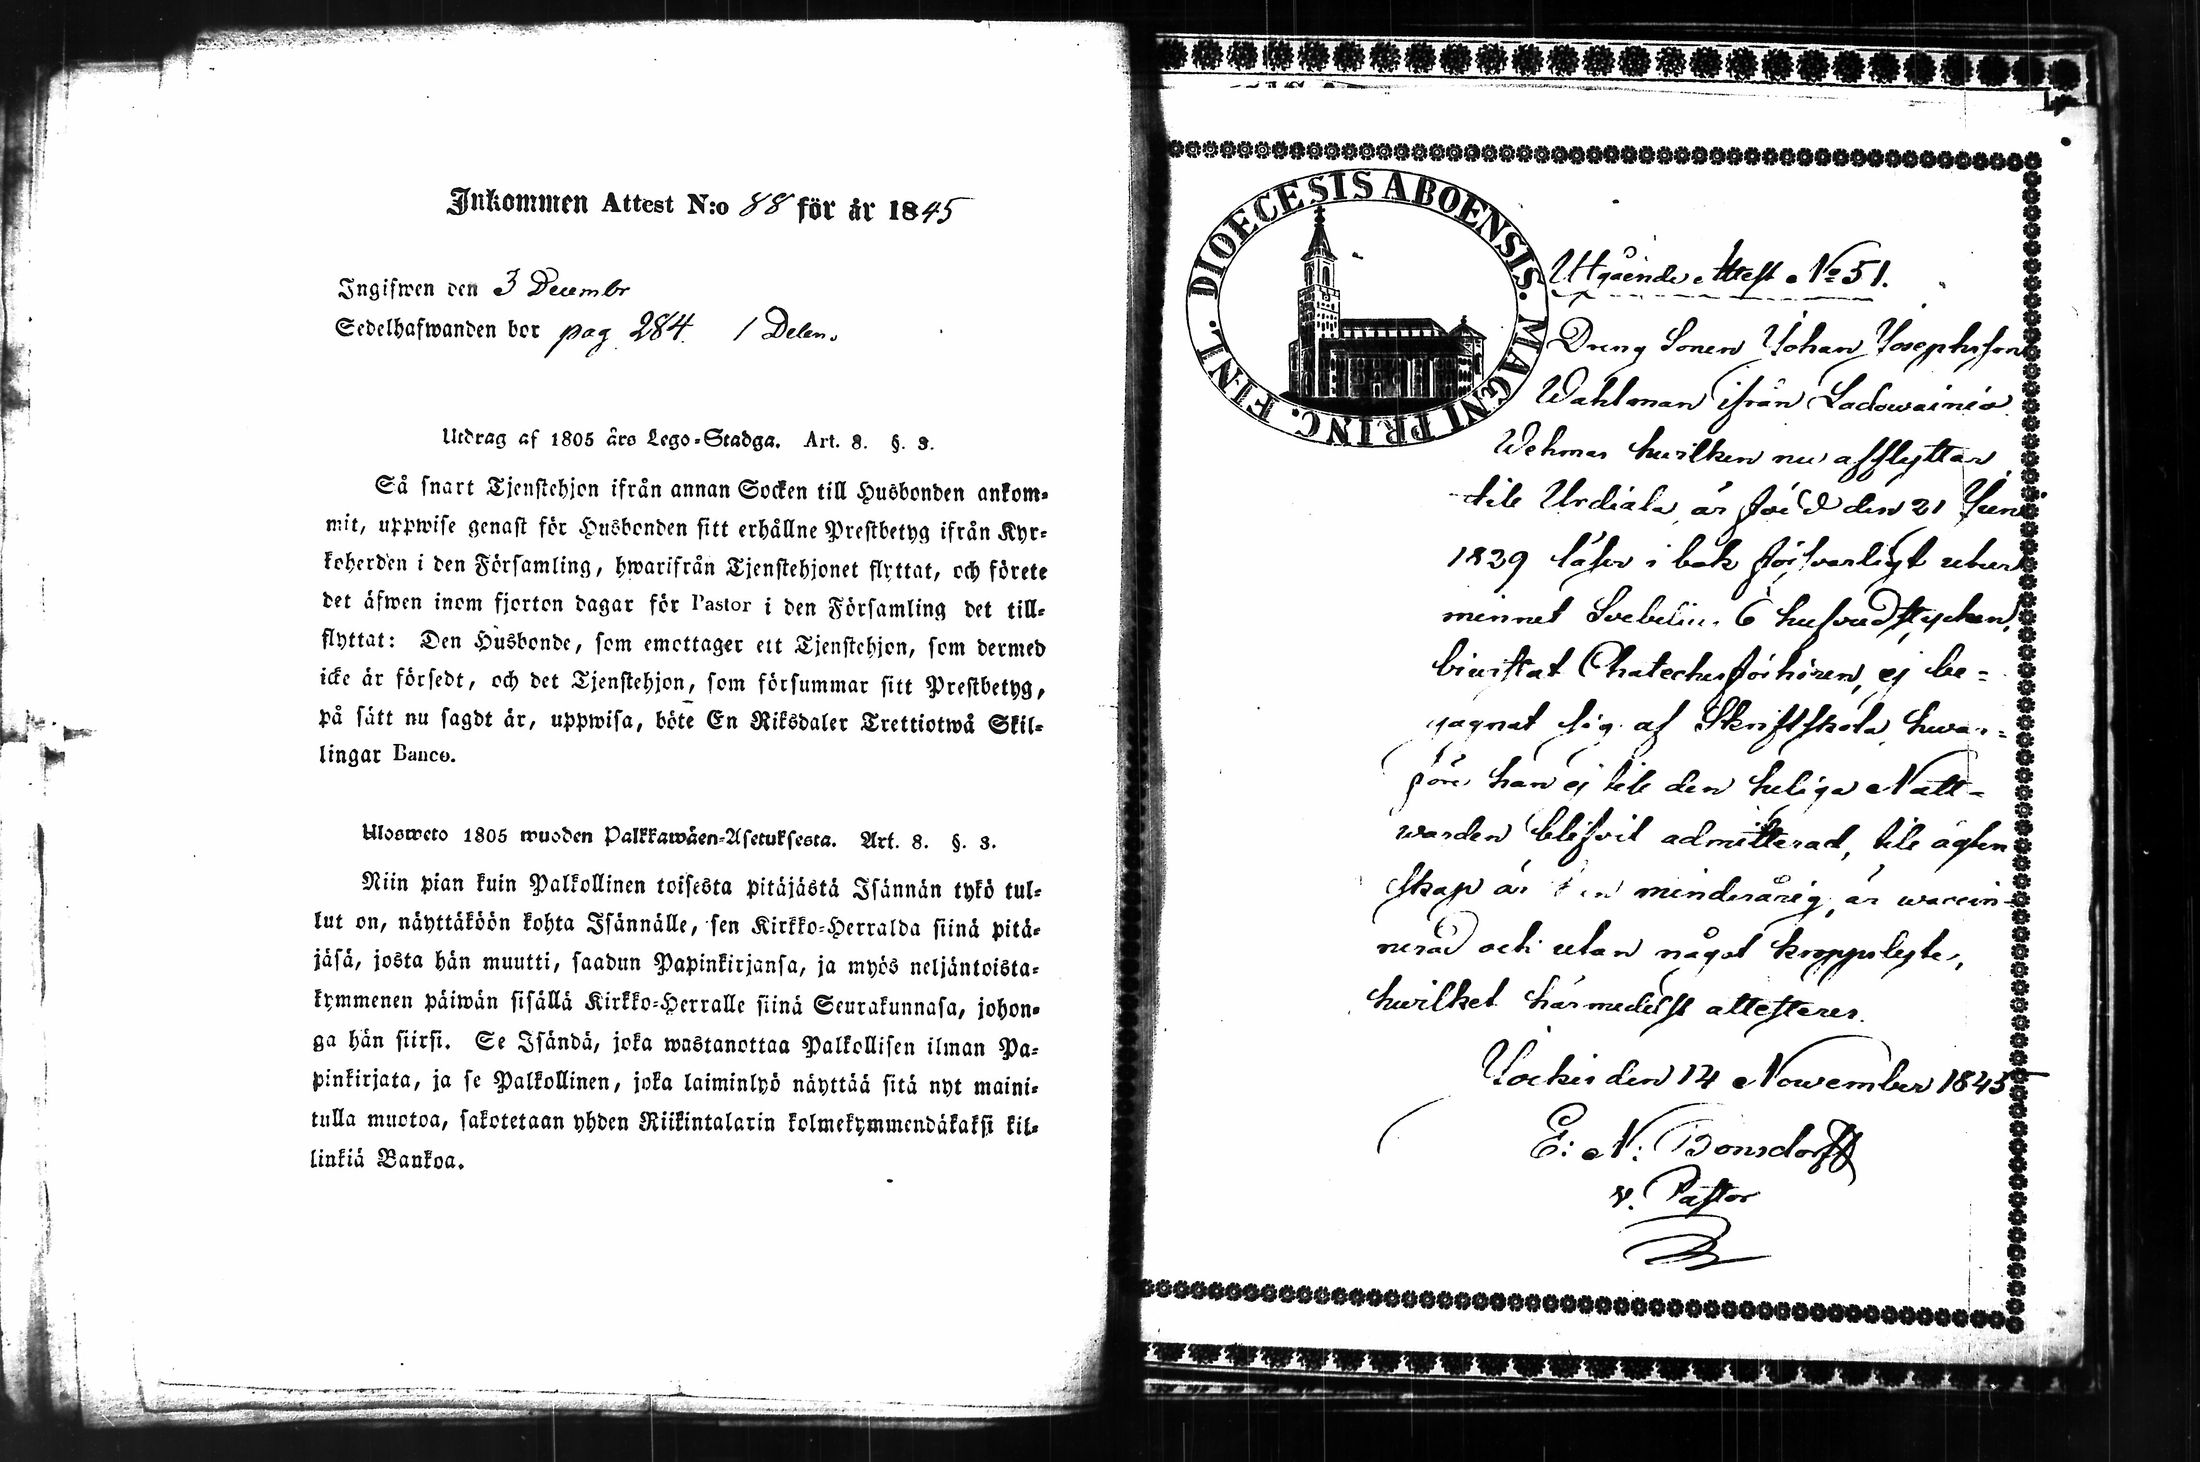 Inkommen Attest N:o 88 för år 1845
Ingifwen den 3 Decembr
Sedelhafwanden bor pag 284. 1 Delen.
Utdrag af 1805 års Lego-Stadga. Art. 8. §. 3.
Så snart Tjenstehjon ifrån annan Socken till Husbonden ankom-
mit, uppwise genast för Husbonden sitt erhållne Prestbetyg ifrån Kyr-
koherden i den Församling, hwarifrån Tjenstehjonet flyttat, och förete
det äfwen inom fjorton dagar för Pastor i den Församling det till-
flyttat: Den Husbonde, som emottager ett Tjenstehjon, som dermed
icke är försedt, och det Tjenstehjon, som försummar sitt Prestbetyg,
på sätt nu sagdt är, uppwisa, böte En Riksdaler Trettiotwå Skil-
lingar Banco.
Ulosweto 1805 wuoden Palkkawäen-Asetuksesta. Art. 8. §. 3.
Niin pian kuin Palkollinen toisesta pitäjästä Isännän tykö tul-
lut on, näyttäköön kohta Isännälle, sen Kirkko-Herralda siinä pitä-
jäsä, josta hän muutti, saadun Papinkirjansa, ja myös neljäntoista-
kymmenen päiwän sisällä Kirkko-Herralle siinä Seurakunnasa, johon-
ga hän siirsi. Se Isändä, joka wastanottaa Palkollisen ilman Pa-
pinkirjata, ja se Palkollinen, joka laiminlyö näyttää sitä nyt maini-
tulla muotoa, sakotetaan yhden Riikintalarin kolmekymmendäkaksi kil-
linkiä Bankoa.
DIOECESIS ABOENSIS. MAGNI PRINC. FINL.
Utgående Attest No 51.
Dreng Sonen Johan Josephsson
Wahlman ifrån Ladowainio
Wehmas hwilken nu afflyttar
till Urdiala, är född den 21 Juni
1829 läser i bok försvarligt utur
minnet Svebelii 6 hufvudstycken,
biwistat Chatechesförhören, ej be-
gagnat sig af Skriftskola, hwar-
före han ej till den heliga Natt-
warden blifvit admitterad, till ägten
skap är minderårig, är waccin-
nerad och utan något kroppslyte,
hwilket härmedelst attesteras.
Jockis den 14 November 1845
E: N: Bonsdorff
v. Pastor